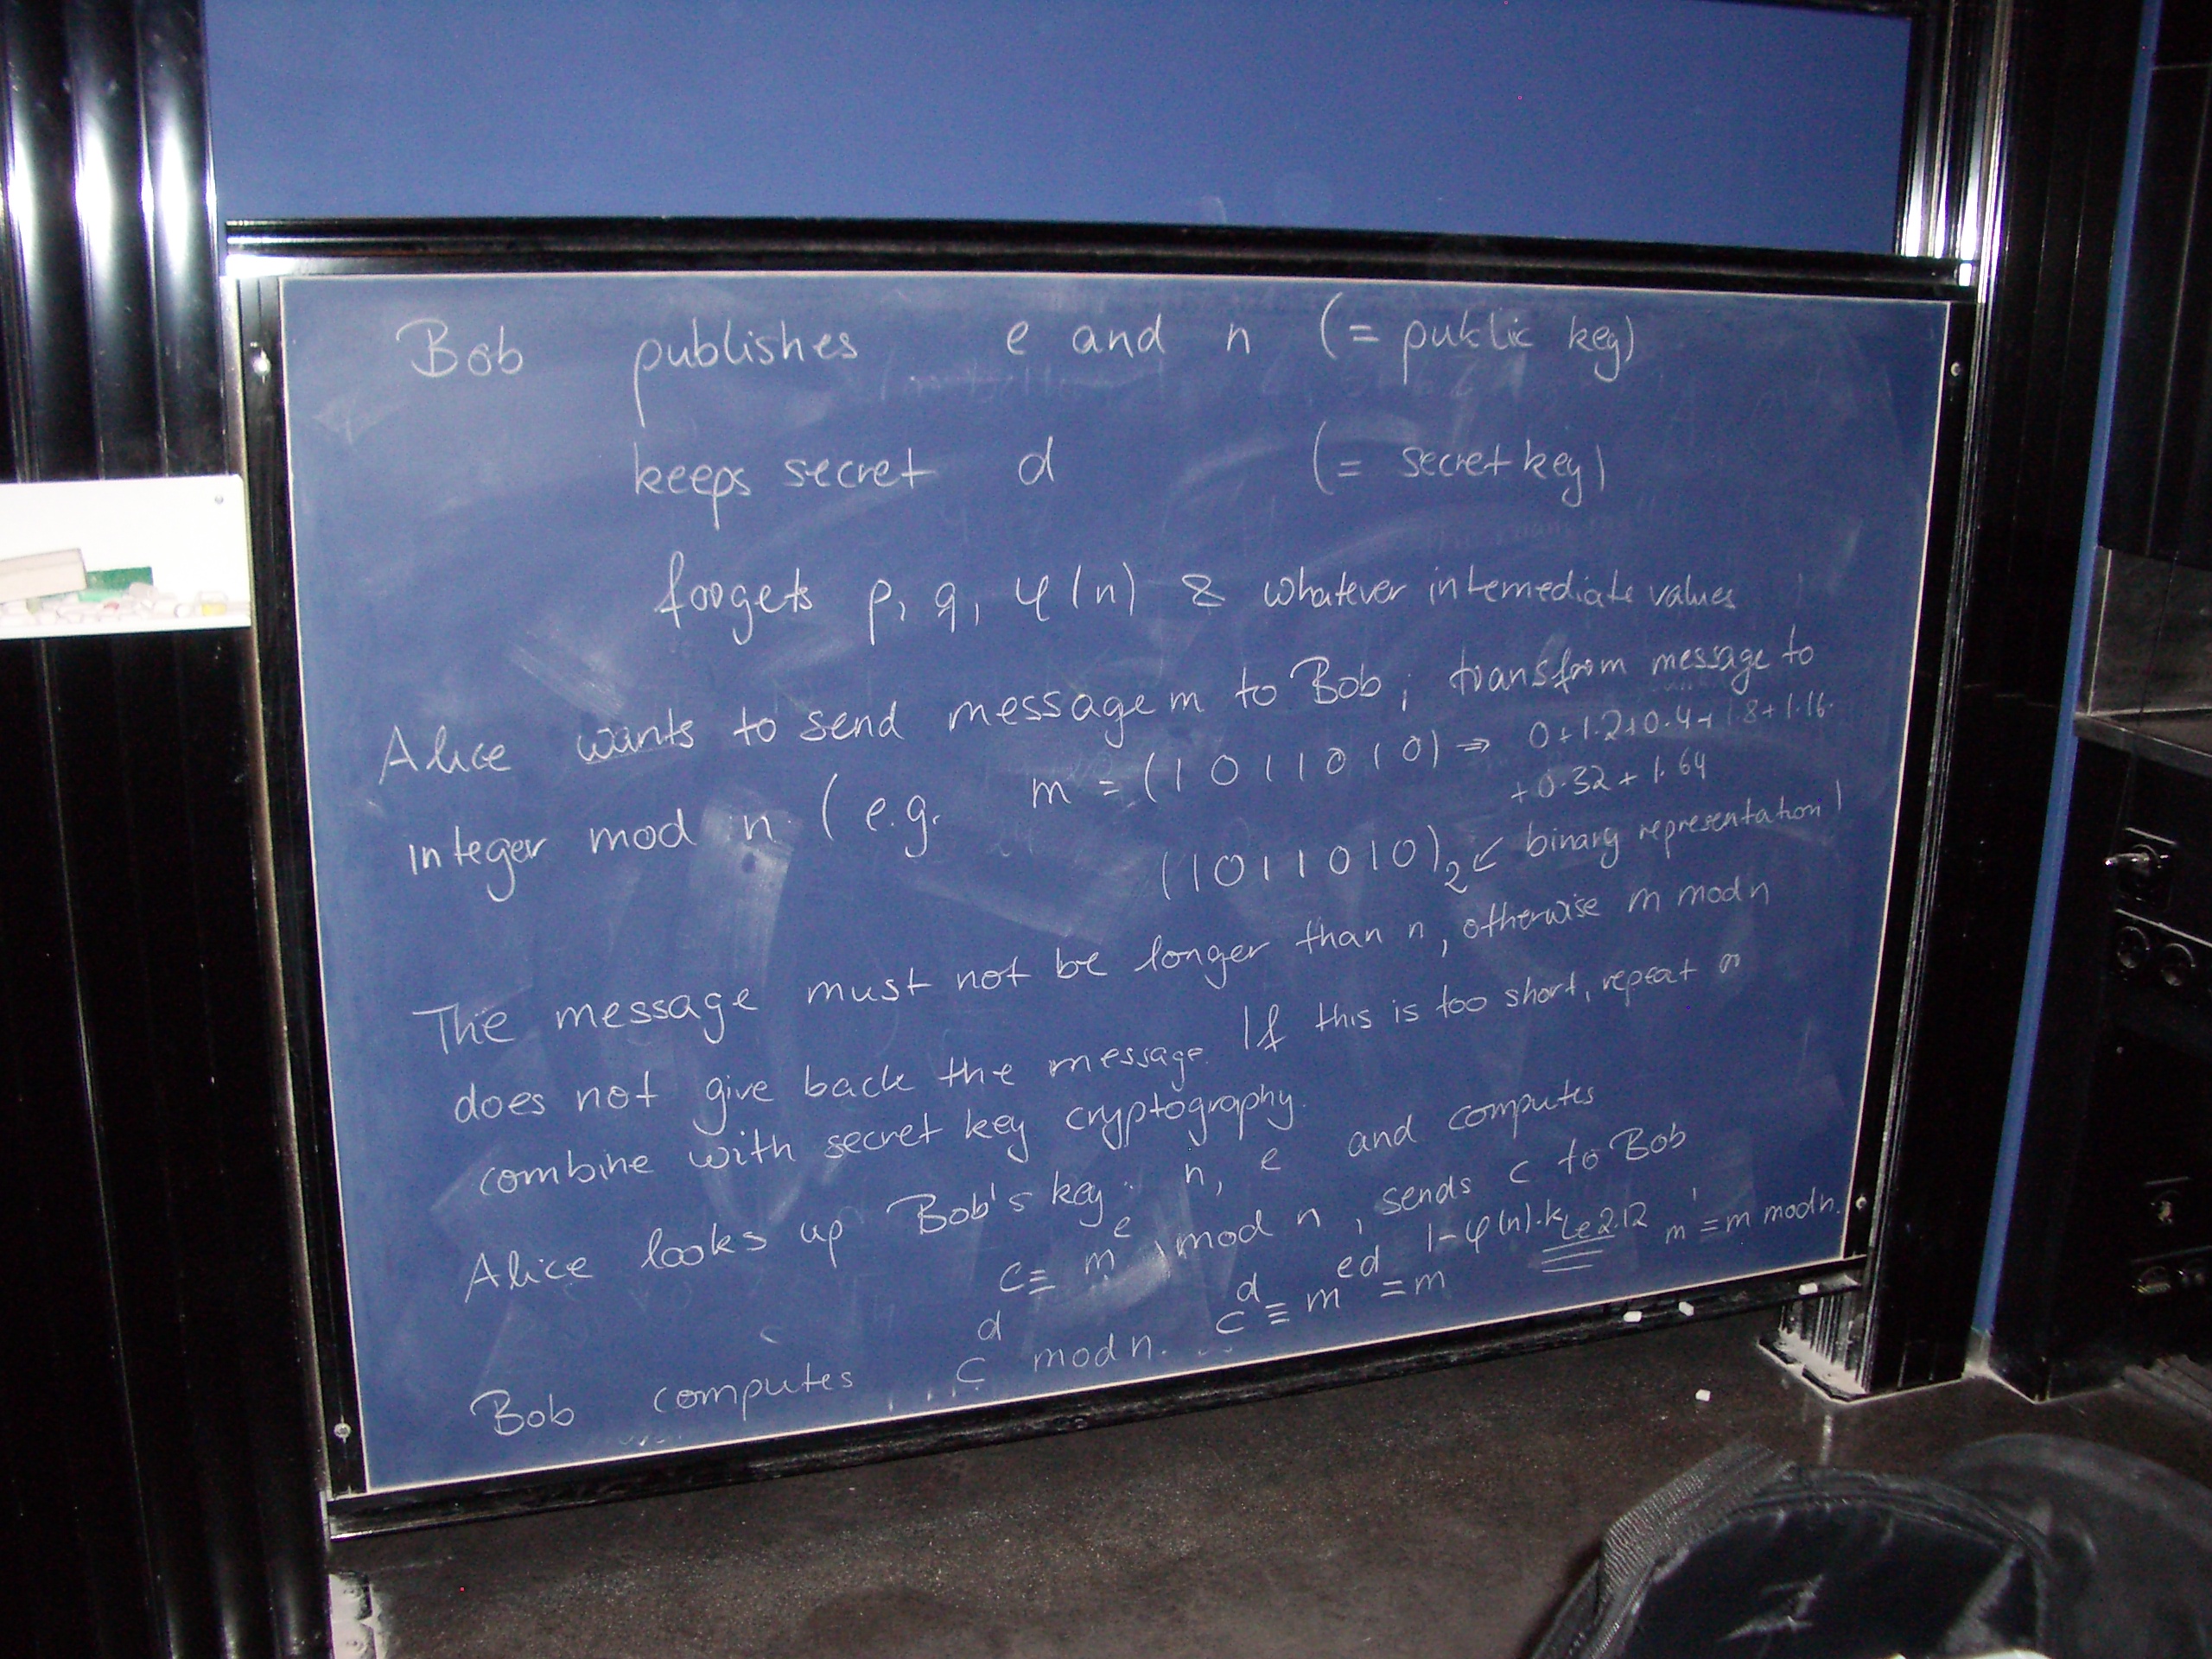 Bob publishes e and n (= public key)
keeps secret d (= secret key)
forgets p, q, φ(n) & whatever intermediate values
Alice wants to send message m to Bob; transfrom message to
integer mod n (e.g. m = (1 0 1 1 0 1 0) ⇒ 0+1·2+0·4+1·8+1·16·
+0·32+1·64
(1011010)₂ ↙ binary representation)
The message must not be longer than n, otherwise m mod n
does not give back the message. If this is too short, repeat or
combine with secret key cryptography.
Alice looks up Bob's key: n, e and computes
c ≡ m^e mod n, sends c to Bob
Bob computes c^d mod n. c^d ≡ m^ed = m^1-φ(n)·k Le 2.12 m^1 = m mod n.